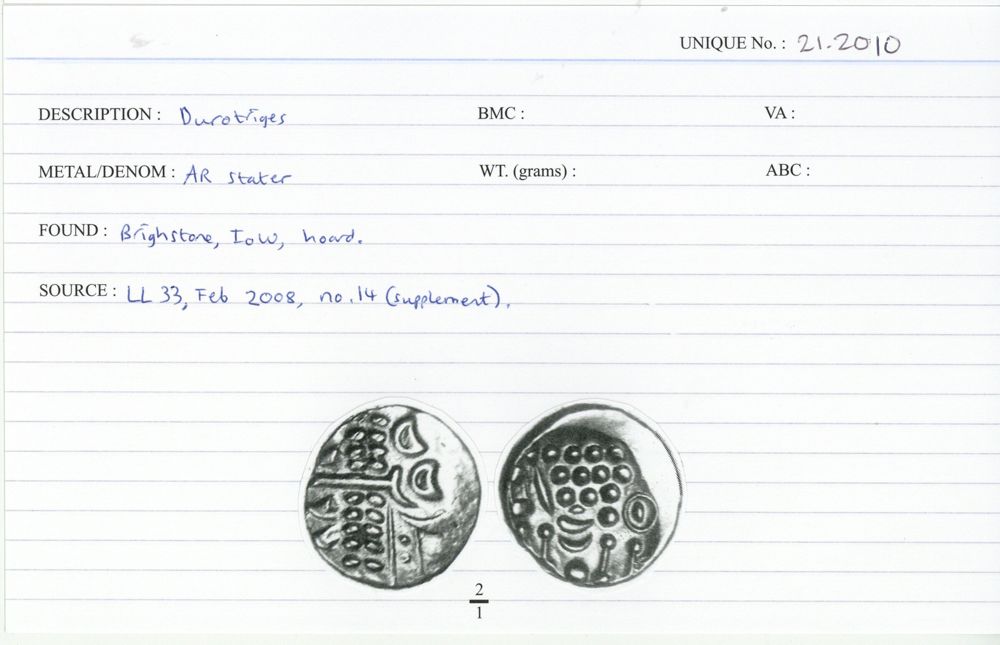 UNIQUE No. : 21.2010
DESCRIPTION : Durotriges BMC : VA :
METAL/DENOM : AR stater WT. (grams) : ABC :
FOUND : Brighstone, IoW, hoard.
SOURCE : LL 33, Feb 2008, no.14 (supplement).
2
1